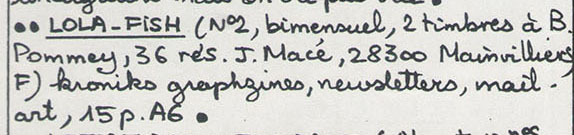 •• LOLA-FISH (N°2, bimensuel, 2 timbres à B.
Pommey, 36 rés. J. Macé, 28300 Mainvilliers,
F) kroniks graphzines, newsletters, mail-
art, 15 p. A6 •